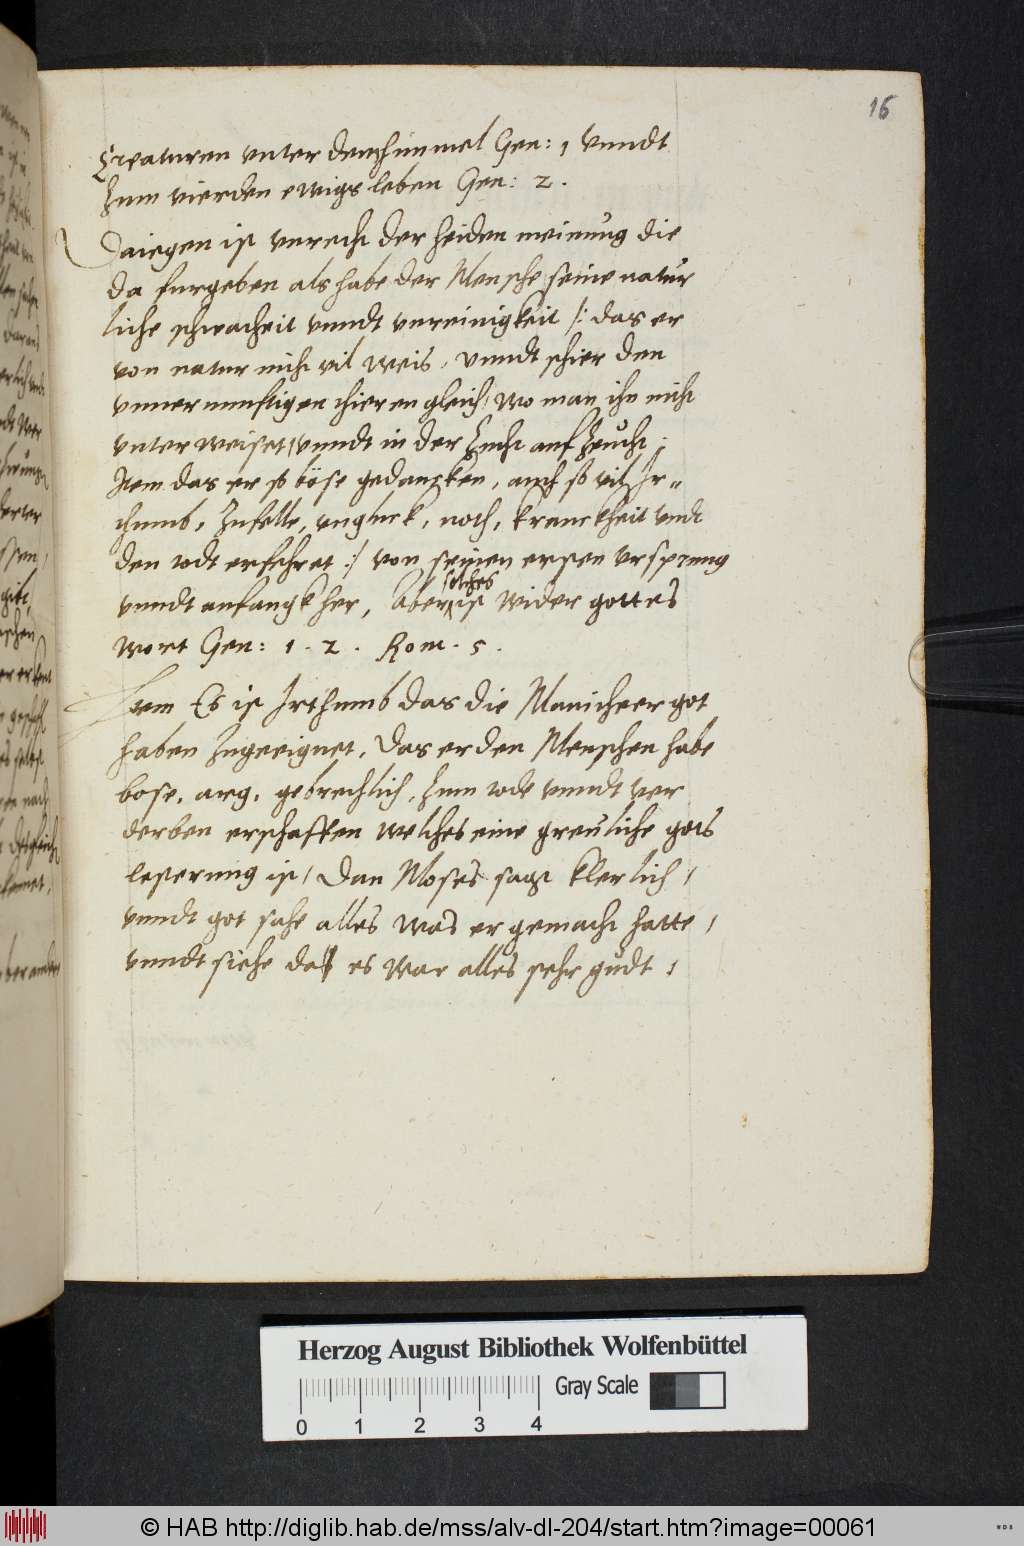 16
Creaturen unter dem himmel Gen: 1 unndt
Zum vierden ewigs leben Gen: 2.
Daiegen ist unrecht der heiden meinung die
da furgeben als habe der Mensche seine natur
liche schwacheit unndt unreinigkeit /: das er
von natur nicht vil weis, unndt schier den
unvernunftigen thieren gleich, wo man ihn nicht
unterweiset, unndt in der Zucht aufzeucht,
Item das er so böse gedancken, auch so vil Ir„
thumb, Zufelle, ungluck, noth, kranckheit undt
den todt erfehret :/ von seinen ersten ursprung
unndt anfangk her, Aber solches ist wider gottes
wort Gen: 1. 2. Rom. 5.
Item Es ist Irthumb das die Manicheer got
haben zugeeignet, Das er den Menschen habe
bose, arg, gebrechlich, Zum tode unndt ver
derben erschaffen welches eine greuliche gots
lesterung ist, Dan Moses sagt klerlich,
unndt got sahe alles was er gemacht hatte,
unndt siehe das es war alles sehr gudt,
Herzog August Bibliothek Wolfenbüttel
Gray Scale
0 1 2 3 4
© HAB http://diglib.hab.de/mss/alv-dl-204/start.htm?image=00061